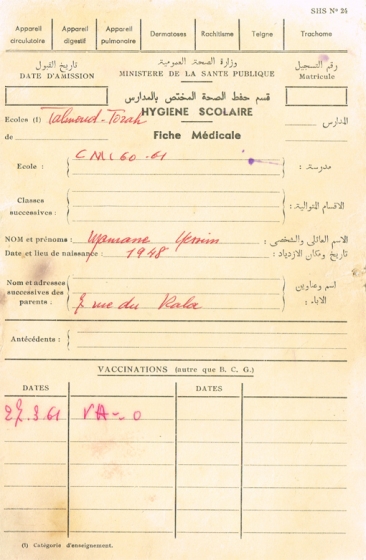 SHS Nº 24
Appareil circulatoire
Appareil digestif
Appareil pulmonaire
Dermatoses
Rachitisme
Teigne
Trachome
تاريخ القبول
وزارة الصحة العمومية
رقم التسجيل
DATE D'ADMISSION
MINISTERE DE LA SANTE PUBLIQUE
Matricule
قسم حفظ الصحة المختص بالمدارس
HYGIENE SCOLAIRE
Ecoles (1) Talmud-Torah
المدارس
de
Fiche Médicale
CM1 60-61
Ecole :
مدرسة :
Classes successives :
الاقسام المتوالية :
NOM et prénoms :
الاسم العائلي والشخصي :
Date et lieu de naissance : 1948
تاريخ ومكان الازدياد :
Nom et adresses successives des parents :
اسم وعناوين الاباء :
rue du
Antécédents :
VACCINATIONS (autre que B. C. G.)
DATES
DATES
27.3.61
(1) Catégorie d'enseignement.